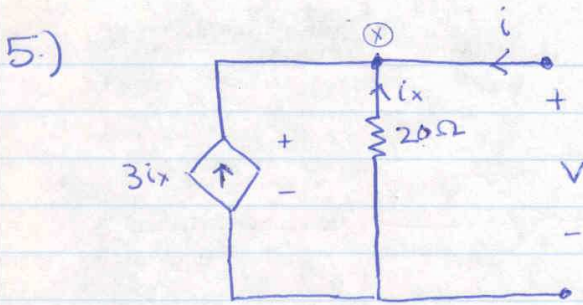 5.)
x
i
ix
+
20Ω
+
3ix
-
V
-